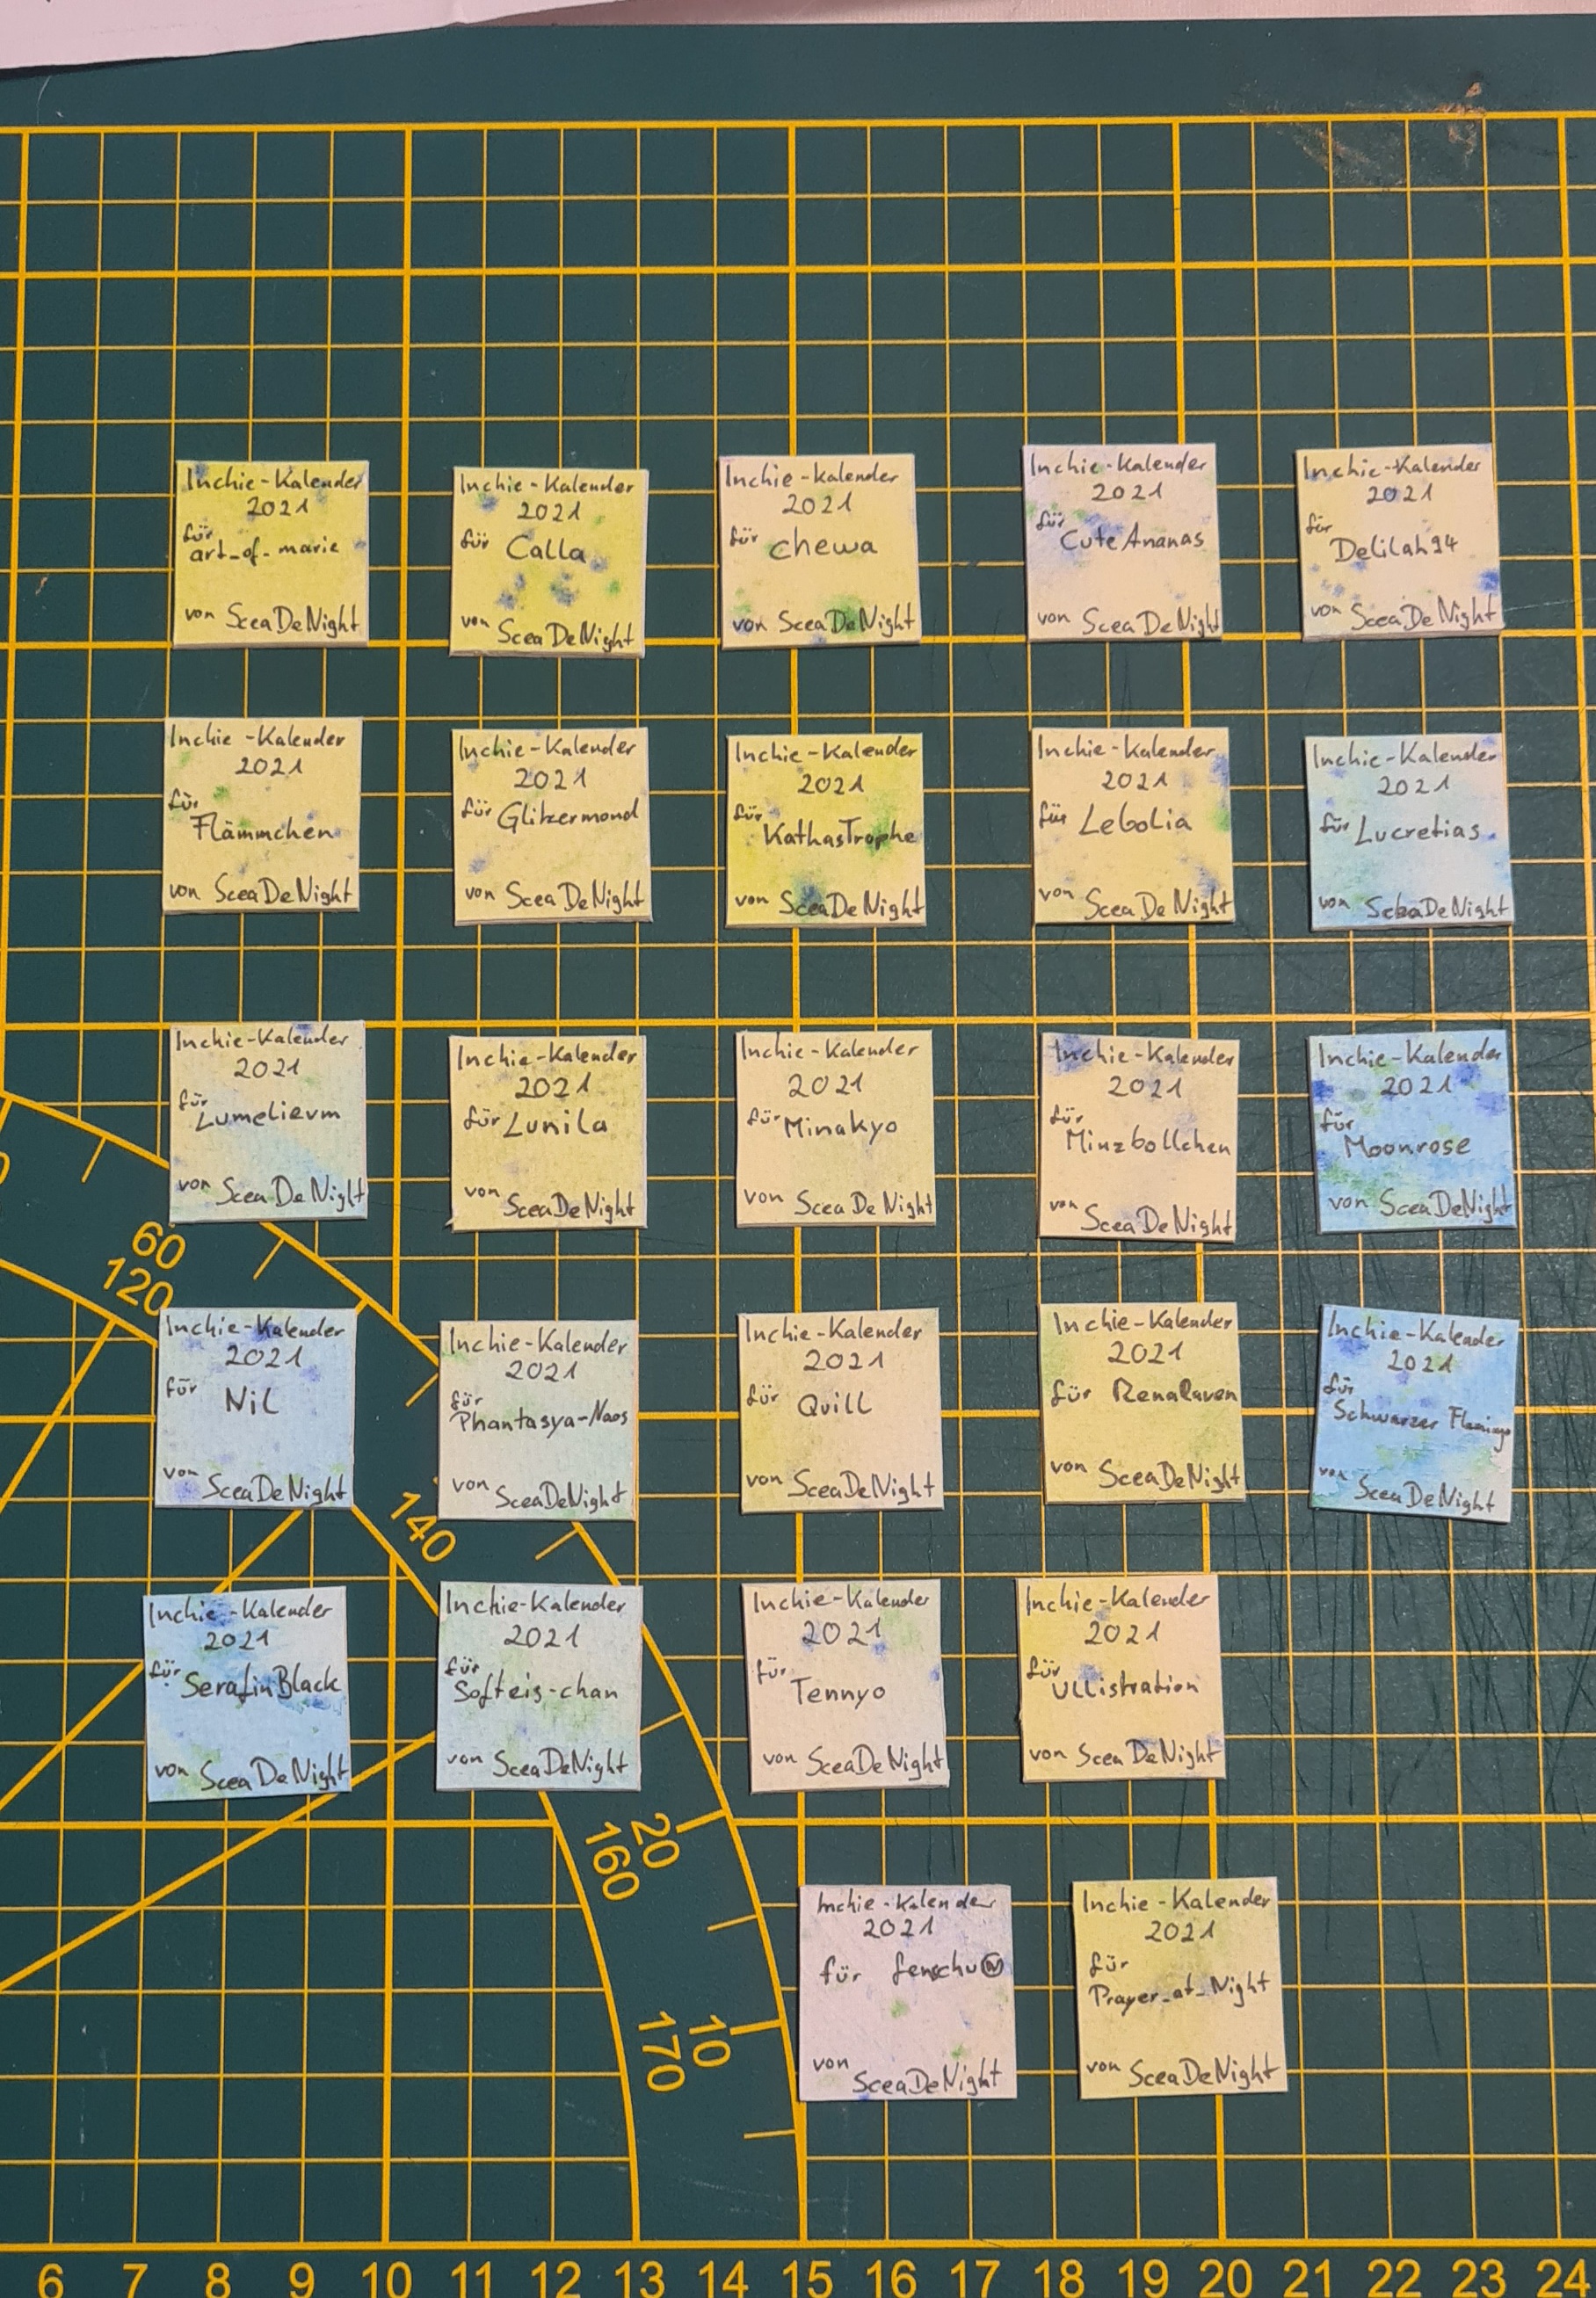 Inchie-Kalender
2021
für
art_of_marie
von SceaDeNight
Inchie-Kalender
2021
für Calla
von SceaDeNight
Inchie-Kalender
2021
für chewa
von SceaDeNight
Inchie-Kalender
2021
für
CuteAnanas
von SceaDeNight
Inchie-Kalender
2021
für
Delilah94
von SceaDeNight
Inchie-Kalender
2021
für
Flämmchen
von SceaDeNight
Inchie-Kalender
2021
für Glitzermond
von SceaDeNight
Inchie-Kalender
2021
für
KathasTrophe
von SceaDeNight
Inchie-Kalender
2021
für Lebolia
von SceaDeNight
Inchie-Kalender
2021
für Lucretias
von SceaDeNight
Inchie-Kalender
2021
für
Lumelievm
von SceaDeNight
Inchie-Kalender
2021
für Lunila
von SceaDeNight
Inchie-Kalender
2021
für Minakyo
von SceaDeNight
Inchie-Kalender
2021
für
Minzbollchen
von SceaDeNight
Inchie-Kalender
2021
für
Moonrose
von SceaDeNight
60
120
Inchie-Kalender
2021
für Nil
von SceaDeNight
Inchie-Kalender
2021
für
Phantasya-Naos
von SceaDeNight
Inchie-Kalender
2021
für Quill
von SceaDeNight
Inchie-Kalender
2021
für RenaRaven
von SceaDeNight
Inchie-Kalender
2021
für
Schwarzer Flamingo
von SceaDeNight
140
Inchie-Kalender
2021
für SerafinBlack
von SceaDeNight
Inchie-Kalender
2021
für
Softeis-chan
von SceaDeNight
Inchie-Kalender
2021
für
Tennyo
von SceaDeNight
Inchie-Kalender
2021
für
Ullistration
von SceaDeNight
20
160
Inchie-Kalender
2021
für
von
SceaDeNight
Inchie-Kalender
2021
für
Prayer_at_Night
von SceaDeNight
10
170
6 7 8 9 10 11 12 13 14 15 16 17 18 19 20 21 22 23 24